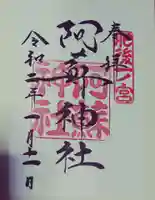 肥後一宮
奉拝
阿蘇神社
阿蘇
神社
令和二年一月十一日